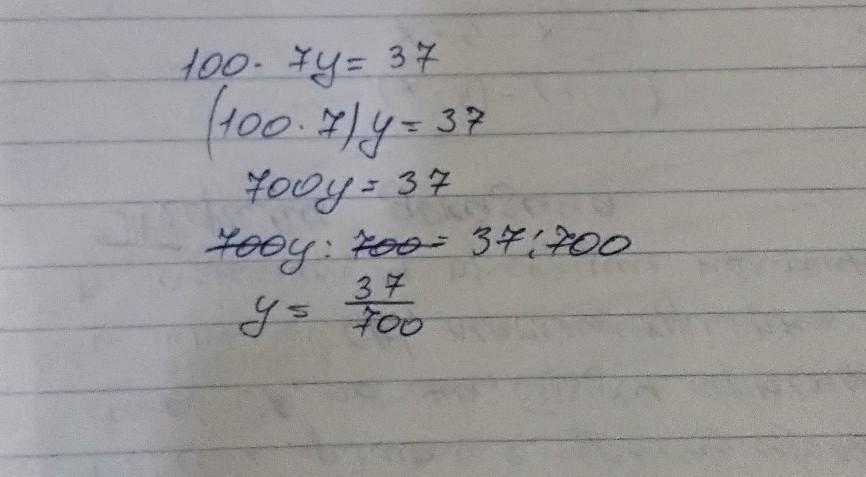 100· 7y = 37
(100·7)y = 37
700y = 37
700y : 700 = 37 : 700
y = 37/700